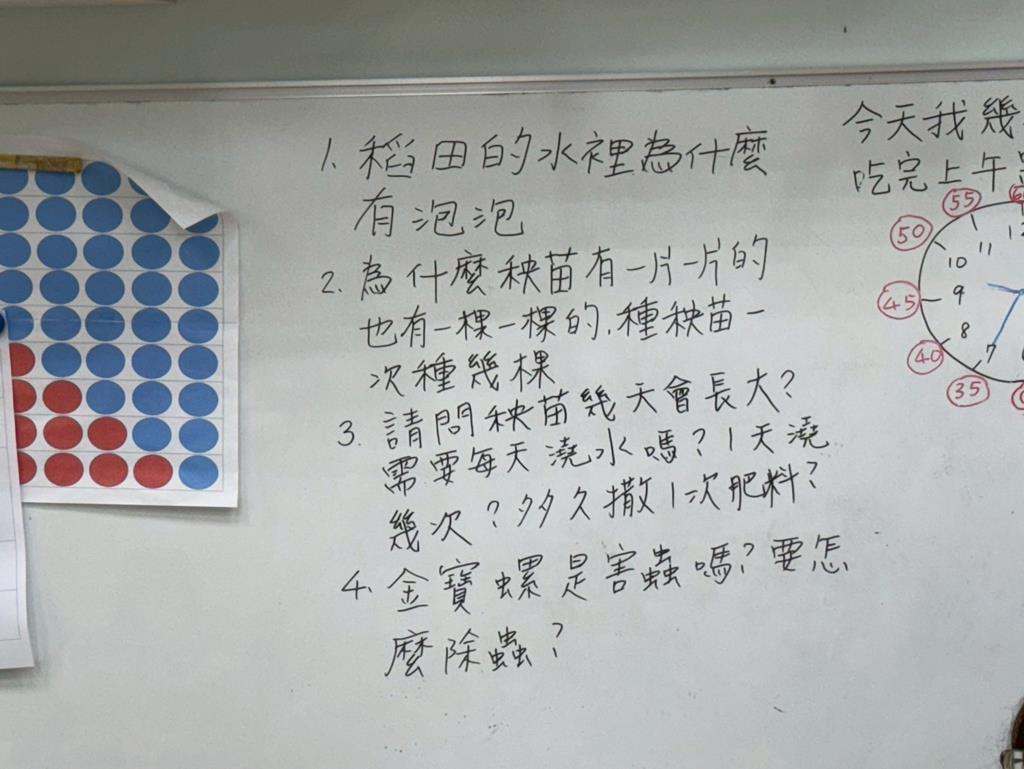 1. 稻田的水裡為什麼
有泡泡
2. 為什麼秧苗有一片一片的
也有一棵一棵的,種秧苗一
次種幾棵
3. 請問秧苗幾天會長大?
需要每天澆水嗎?1天澆
幾次?多久撒1次肥料?
4. 金寶螺是害蟲嗎?要怎
麼除蟲?
今天我幾
吃完上午
55
50
11
10
45
9
8
40
7
35